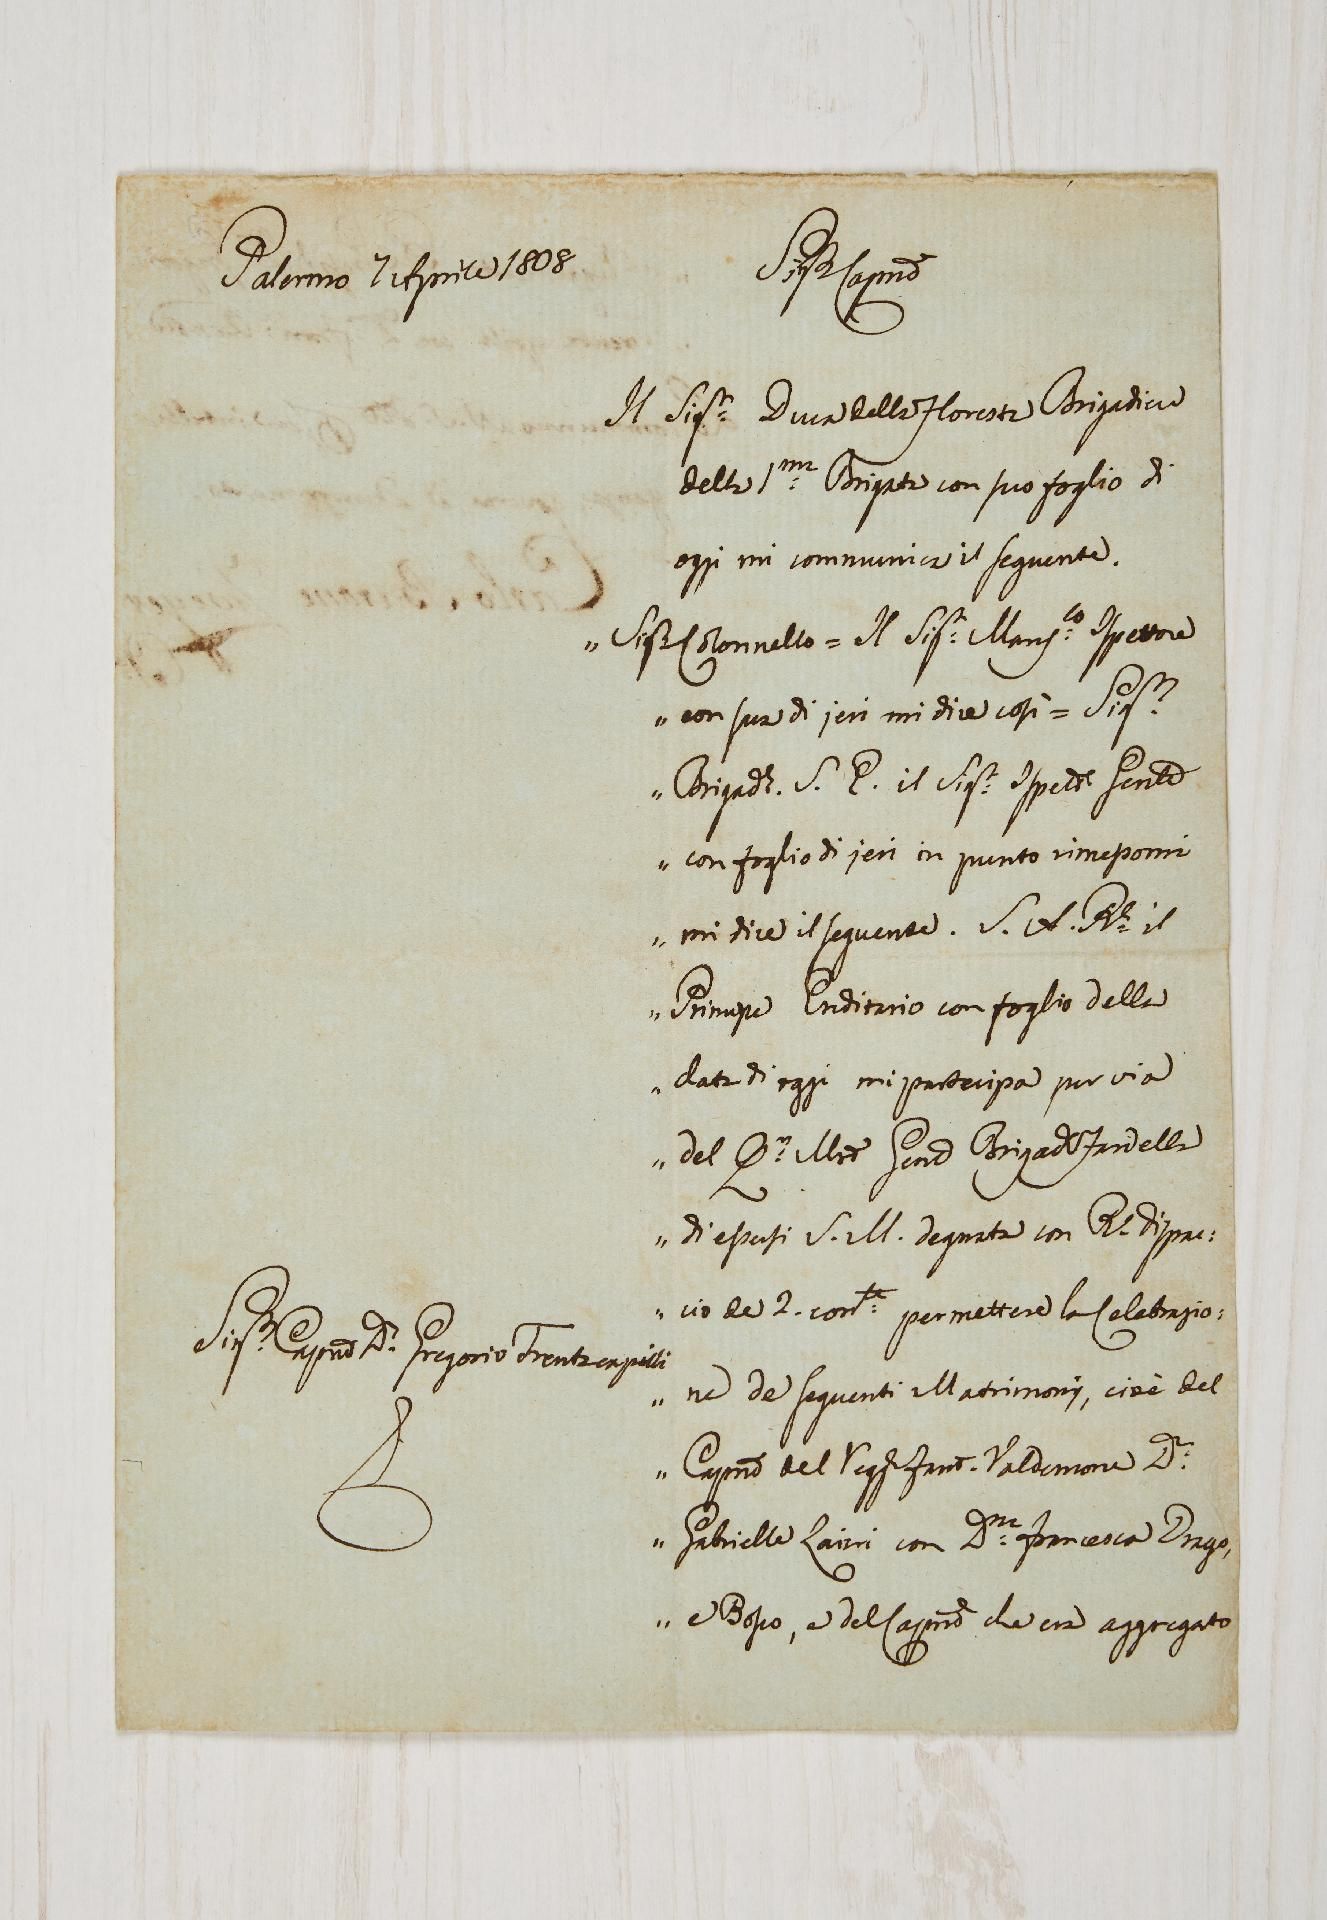 Palermo 7 Aprile 1808
Sig.r Cap.no
Il Sig.r Duca della Floresta Brigadiere
della 1.ma Brigata con suo foglio di
oggi mi communica il seguente.
" Sig.r Colonnello = Il Sig.r Ispettore
" con sua di jeri mi dice così = Sig.r
" Brigad.e S. E. il Sig.r Ispett.e Gen.le
" con foglio di jeri in punto rimessomi
" mi dice il seguente. S. A. R.le il
" Principe Ereditario con foglio della
" data di oggi mi partecipa per via
" del Q.r M.ro Gen.le Brigad.e Fardella
" di essersi S. M. degnata con R.l dispac:
" cio de 2. corr.te permettere la Celebrazio:
" ne de seguenti Matrimonj, cioè del
" Cap.no del Regg.to Fant. Valdemone D.n
" Gabriele con D.na Francesca Drago,
" e Bosso, e del Cap.no che era aggregato
Sig.r Cap.no D.n Gregorio Trentacapilli